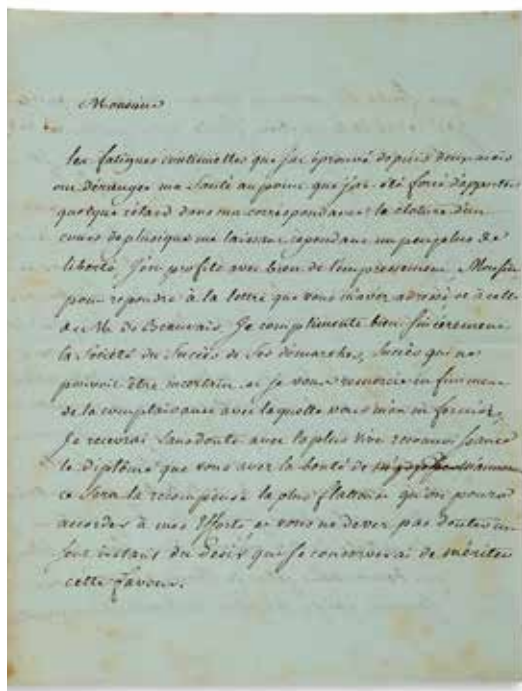 Monsieur
les fatigues continuelles que j'ai éprouvé depuis deux mois
ont dérangé ma santé au point que j'ai été forcé d'apporter
quelque rétard dans ma correspondance. la cloture d'un
cours de physique me laissant cependant un peu plus de
liberté, J'en profite avec bien de l'empressement Monsieur
pour repondre à la lettre que vous m'avez adressé et à celle
de M. de Beauvais. Je complimente bien sincèrement
la Société du Succès de Ses démarches, Succès qui ne
pouvoit être incertain et je vous remercie infiniment
de la complaisance avec laquelle vous m'en informez,
Je recevrai Sans doute avec la plus vive reconnoissance
le diplôme que vous avez la bonté de m'annoncer
ce Sera la récompense la plus flatteuse qu'on pourra
accorder à mes efforts et vous ne devez pas douter un
Seul instant du desir que je conserverai de mériter
cette faveur.